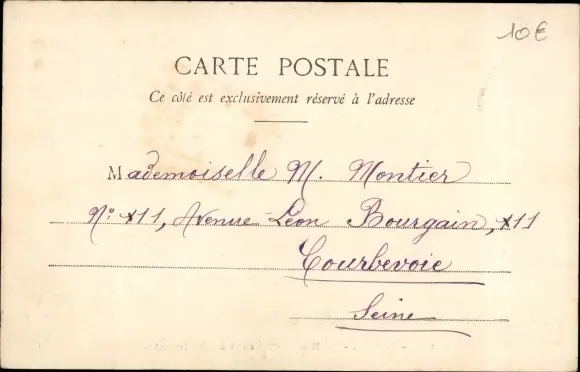 10€
CARTE POSTALE
Ce côté est exclusivement réservé à l'adresse
Mademoiselle M. Montier
N° 11, Avenue Léon Bourgain, 11
Courbevoie
Seine